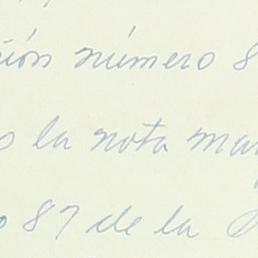 ión número 8
la nota mar
87 de la